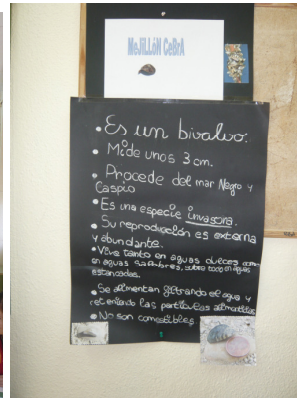 MeJiLLóN CeBrA
• Es un bivalvo.
• Mide unos 3 cm.
• Procede del mar Negro y
Caspio
• Es una especie invasora.
• Su reproducción es externa
y abundante.
• Vive tanto en aguas dulces como
en aguas salobres, sobre todo en aguas
estancadas.
• Se alimentan filtrando el agua y
reteniendo las partículas alimenticias
• No son comestibles.